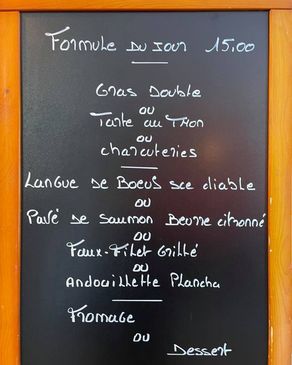 Formule du jour 15.00
Gras Double
ou
Tarte au Thon
ou
charcuteries
Langue de Boeuf sce diable
ou
Pavé de Saumon Beurre citronné
ou
Faux-Filet Grillé
ou
Andouillette Plancha
Fromage
ou
Dessert